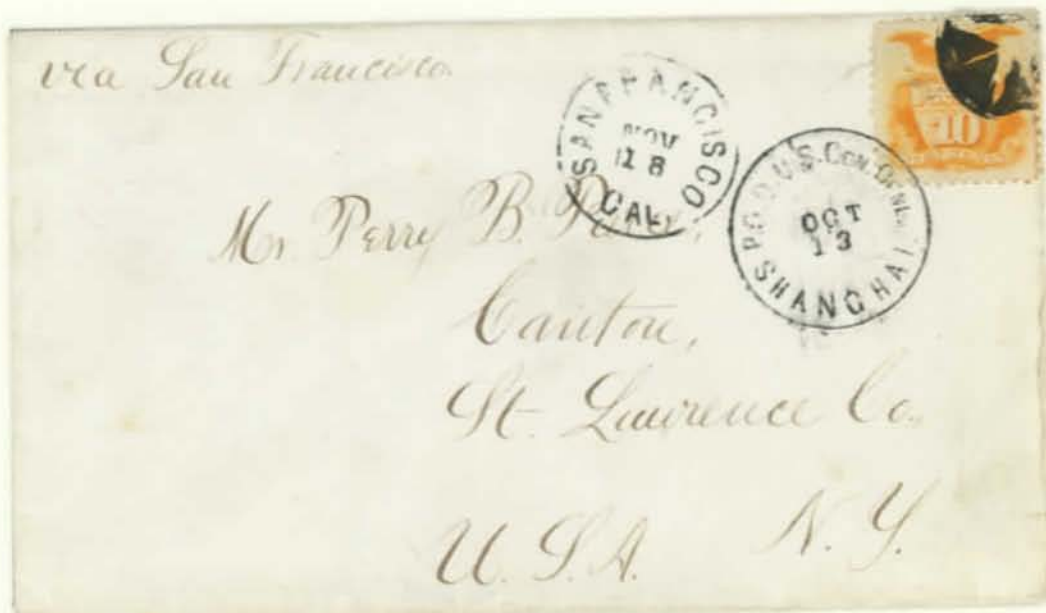 via San Francisco
SAN FRANCISCO
NOV
18
CAL
P.O.D.U.S. CON. GENL.
OCT
13
SHANGHAI
10
Mr. Perry B.
Canton,
St. Lawrence Co.
N. Y.
U. S. A.